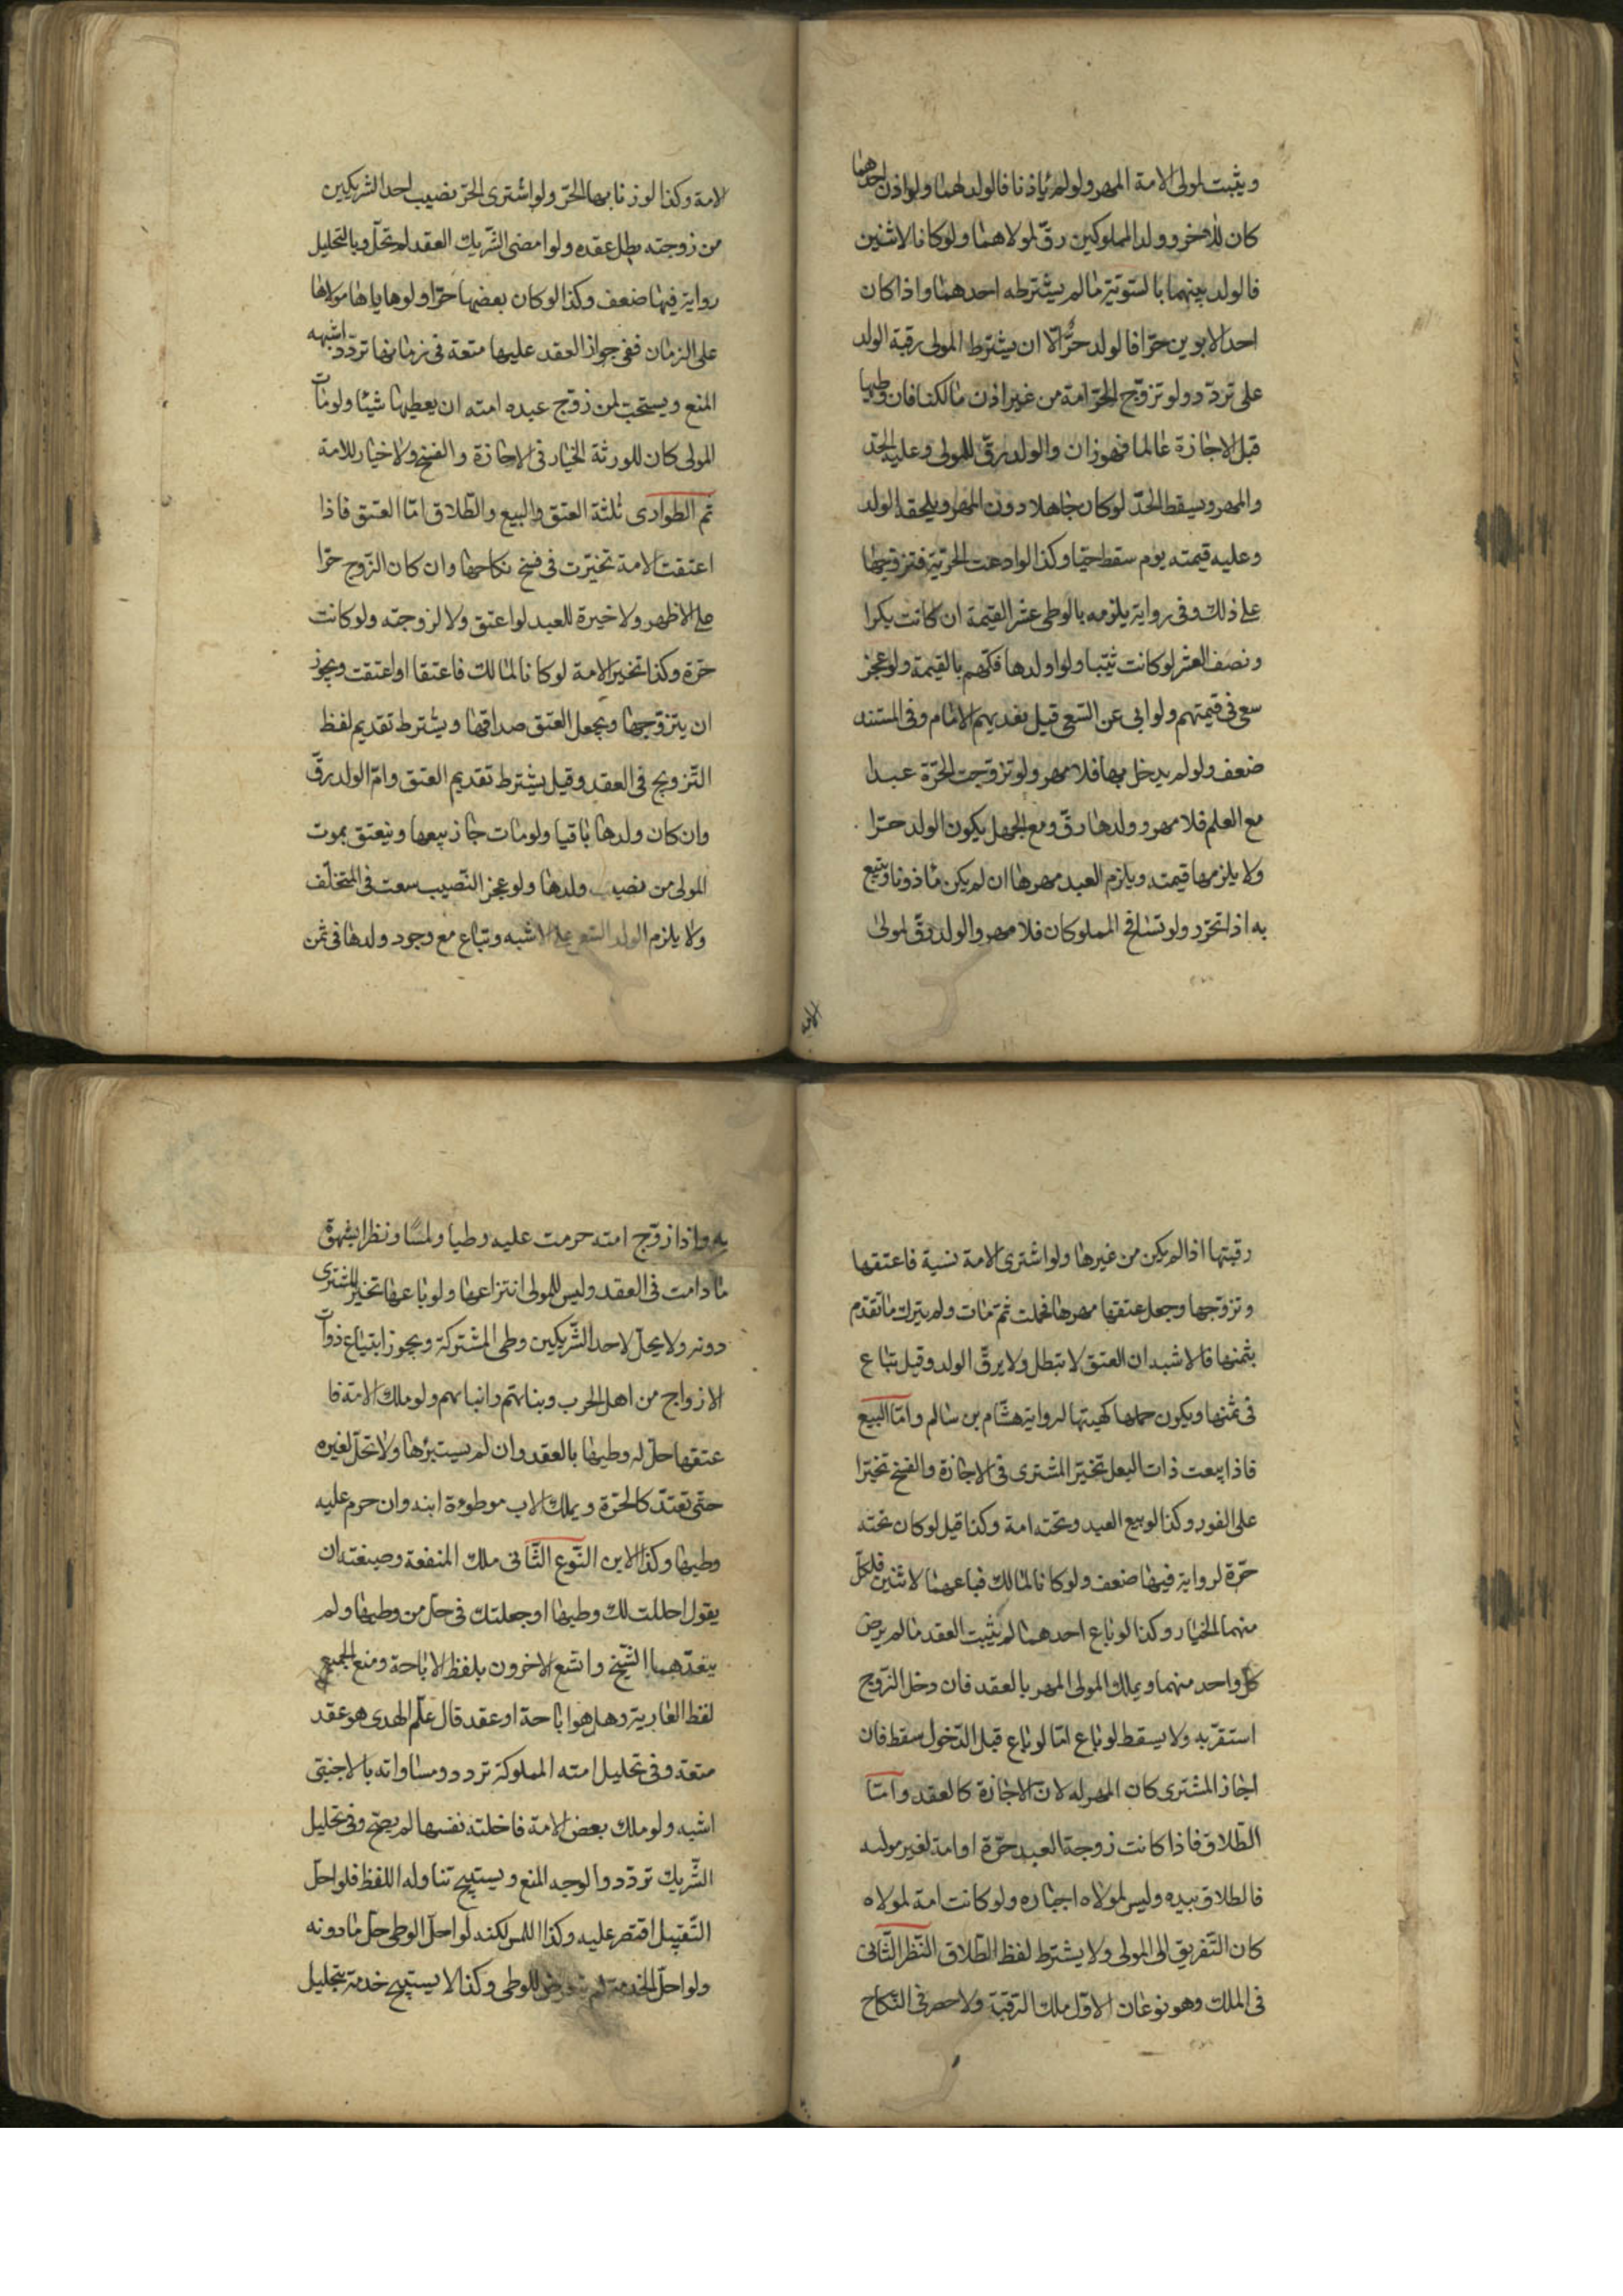 ويثبت لمولى الامة المهر ولو لم ياذنا فالولد لهما ولو اذن احدهما
كان للاخر وولد المملوكين رق لمولاهما ولو كانا لاثنين
فالولد بينهما بالسوتية ما لم يشترطه احدهما واذا كان
احد الابوين حرا فالولد حرّ الا ان يشترط المولى رقية الولد
على تردد ولو تزوّج الحر امة من غير اذن مالكها فان وطيها
قبل الاجازة عالما فهو زان والولد رقّ للمولى وعليه الحد
والمهر ويسقط الحدّ لو كان جاهلا دون المهر ويلحقه الولد
وعليه قيمته يوم سقط حيا وكذا لو ادعت الحرية فتزوجها
على ذلك وفى رواية يلزمه بالوطى عشر القيمة ان كانت بكرا
ونصف العشر لو كانت ثيبا ولو اولدها فكهم بالقيمة ولو عجز
سعى فى قيمتهم ولو ابى عن السعى قيل يفديهم الامام وفى المستند
ضعف ولو لم يدخل بها فلا مهر ولو تزوجت الحرّة عبدا
مع العلم فلا مهر وولدها رقّ ومع الجهل يكون الولد حرا
ولا يلزمها قيمته ويلزم العبد مهرها ان لم يكن ماذونا ويتبع
به اذا تحرّر ولو تسافح المملوكان فلا مهر والولد رقّ لمولى
الامة
لامة وكذا لو زنا بها الحرّ ولو اشترى الحرّ نصيب احد الشريكين
من زوجته بطل عقده ولو امضى الشريك العقد لم تحلّ وبالتحليل
رواية فيها ضعف وكذا لو كان بعضها حرّا ولو هاياها مولاها
على الزمان ففى جواز العقد عليها متعة فى زمانها تردّد اشبهه
المنع ويستحب لمن زوّج عبده امته ان يعطيها شيئا ولو مات
المولى كان للورثة الخيار فى الاجازة والفسخ ولا خيار للامة
ثم الطوارى ثلثة العتق والبيع والطّلاق امّا العتق فاذا
اعتقت الامة تخيّرت فى فسخ نكاحها وان كان الزوج حرّا
على الاظهر ولا خيرة للعبد لو اعتق ولا لزوجته ولو كانت
حرّة وكذا تخير الامة لو كانا لمالك فاعتقا او اعتقت ويجوز
ان يتزوّجها ويجعل العتق صداقها ويشترط تقديم لفظ
التّزويج فى العقد وقيل يشترط تقديم العتق وامّ الولد رقّ
وان كان ولدها باقيا ولو مات جاز بيعها وينعتق بموت
المولى من نصيب ولدها ولو عجز النّصيب سعت فى المتخلّف
ولا يلزم الولد السّعى على الاشبه وتباع مع وجود ولدها فى ثمن
رقبتها اذا لم يكن من غيرها ولو اشترى الامة نسية فاعتقها
وتزوّجها وجعل عتقها مهرها فحملت ثمّ مات ولم يترك ما تقدّم
بثمنها فالاشبه ان العتق لا تبطل ولا يرقّ الولد وقيل تباع
فى ثمنها ويكون حملها كهيتها لرواية هشام بن سالم وامّا البيع
فاذا بيعت ذات البعل تخيّر المشترى فى الاجازة والفسخ تخيّرا
على الفور وكذا لو بيع العبد وتحته امة وكذا قيل لو كان تحته
حرّة لرواية فيها ضعف ولو كانا لمالك فباعهما لاثنين فلكلّ
منهما الخيار وكذا لو باع احدهما لم يثبت العقد ما لم يرض
كلّ واحد منهما ويملك المولى المهر بالعقد فان دخل الزوج
استقرّ به ولا يسقط لو باع امّا لو باع قبل الدّخول سقط فان
اجاز المشترى كان المهر له لانّ الاجازة كالعقد وامّا
الطّلاق فاذا كانت زوجة العبد حرّة او امة لغير موليه
فالطلاق بيده وليس لمولاه اجباره ولو كانت امة لمولاه
كان التّفريق الى المولى ولا يشترط لفظ الطّلاق النّظر الثّانى
فى الملك وهو نوعان الاوّل ملك الرقبة ولا حصر فى النّكاح
به واذا زوّج امته حرمت عليه وطيا ولمسا ونظرا بشهوة
ما دامت فى العقد وليس للمولى انتزاعها ولو باعها تخيّر المشترى
دونه ولا يحلّ لاحد الشّريكين وطى المشتركة ويجوز ابتياع ذوات
الازواج من اهل الحرب وبناتهم وابنايهم ولو ملك الامة فا
عتقها حلّ له وطيها بالعقد وان لم يستبرئها ولا تحلّ لغيره
حتّى تعتدّ كالحرّة ويملك الاب موطوءة ابنه وان حرم عليه
وطيها وكذا الابن النّوع الثّانى ملك المنفعة وصيغته ان
يقول احللت لك وطيها او جعلتك فى حلّ من وطيها ولم
يتعدّهما الشّيخ واتسع الاخرون بلفظ الاباحة ومنع الجميع
لفظ العارية وهل هو اباحة او عقد قال علم الهدى هو عقد
متعة وفى تحليل امته المملوكة تردد ومساواته بالاجنبى
اشبه ولو ملك بعض الامة فاحلته نفسها لم يصحّ وفى تحليل
الشّريك تردّد والوجه المنع ويستبيح تناوله اللفظ فلو احلّ
التّقبيل اقتصر عليه وكذا اللمس لكنه لو احلّ الوطى حلّ ما دونه
ولو احلّ الخدمة لم يتعرض للوطى وكذا لا يستبيح خدمة بتحليل